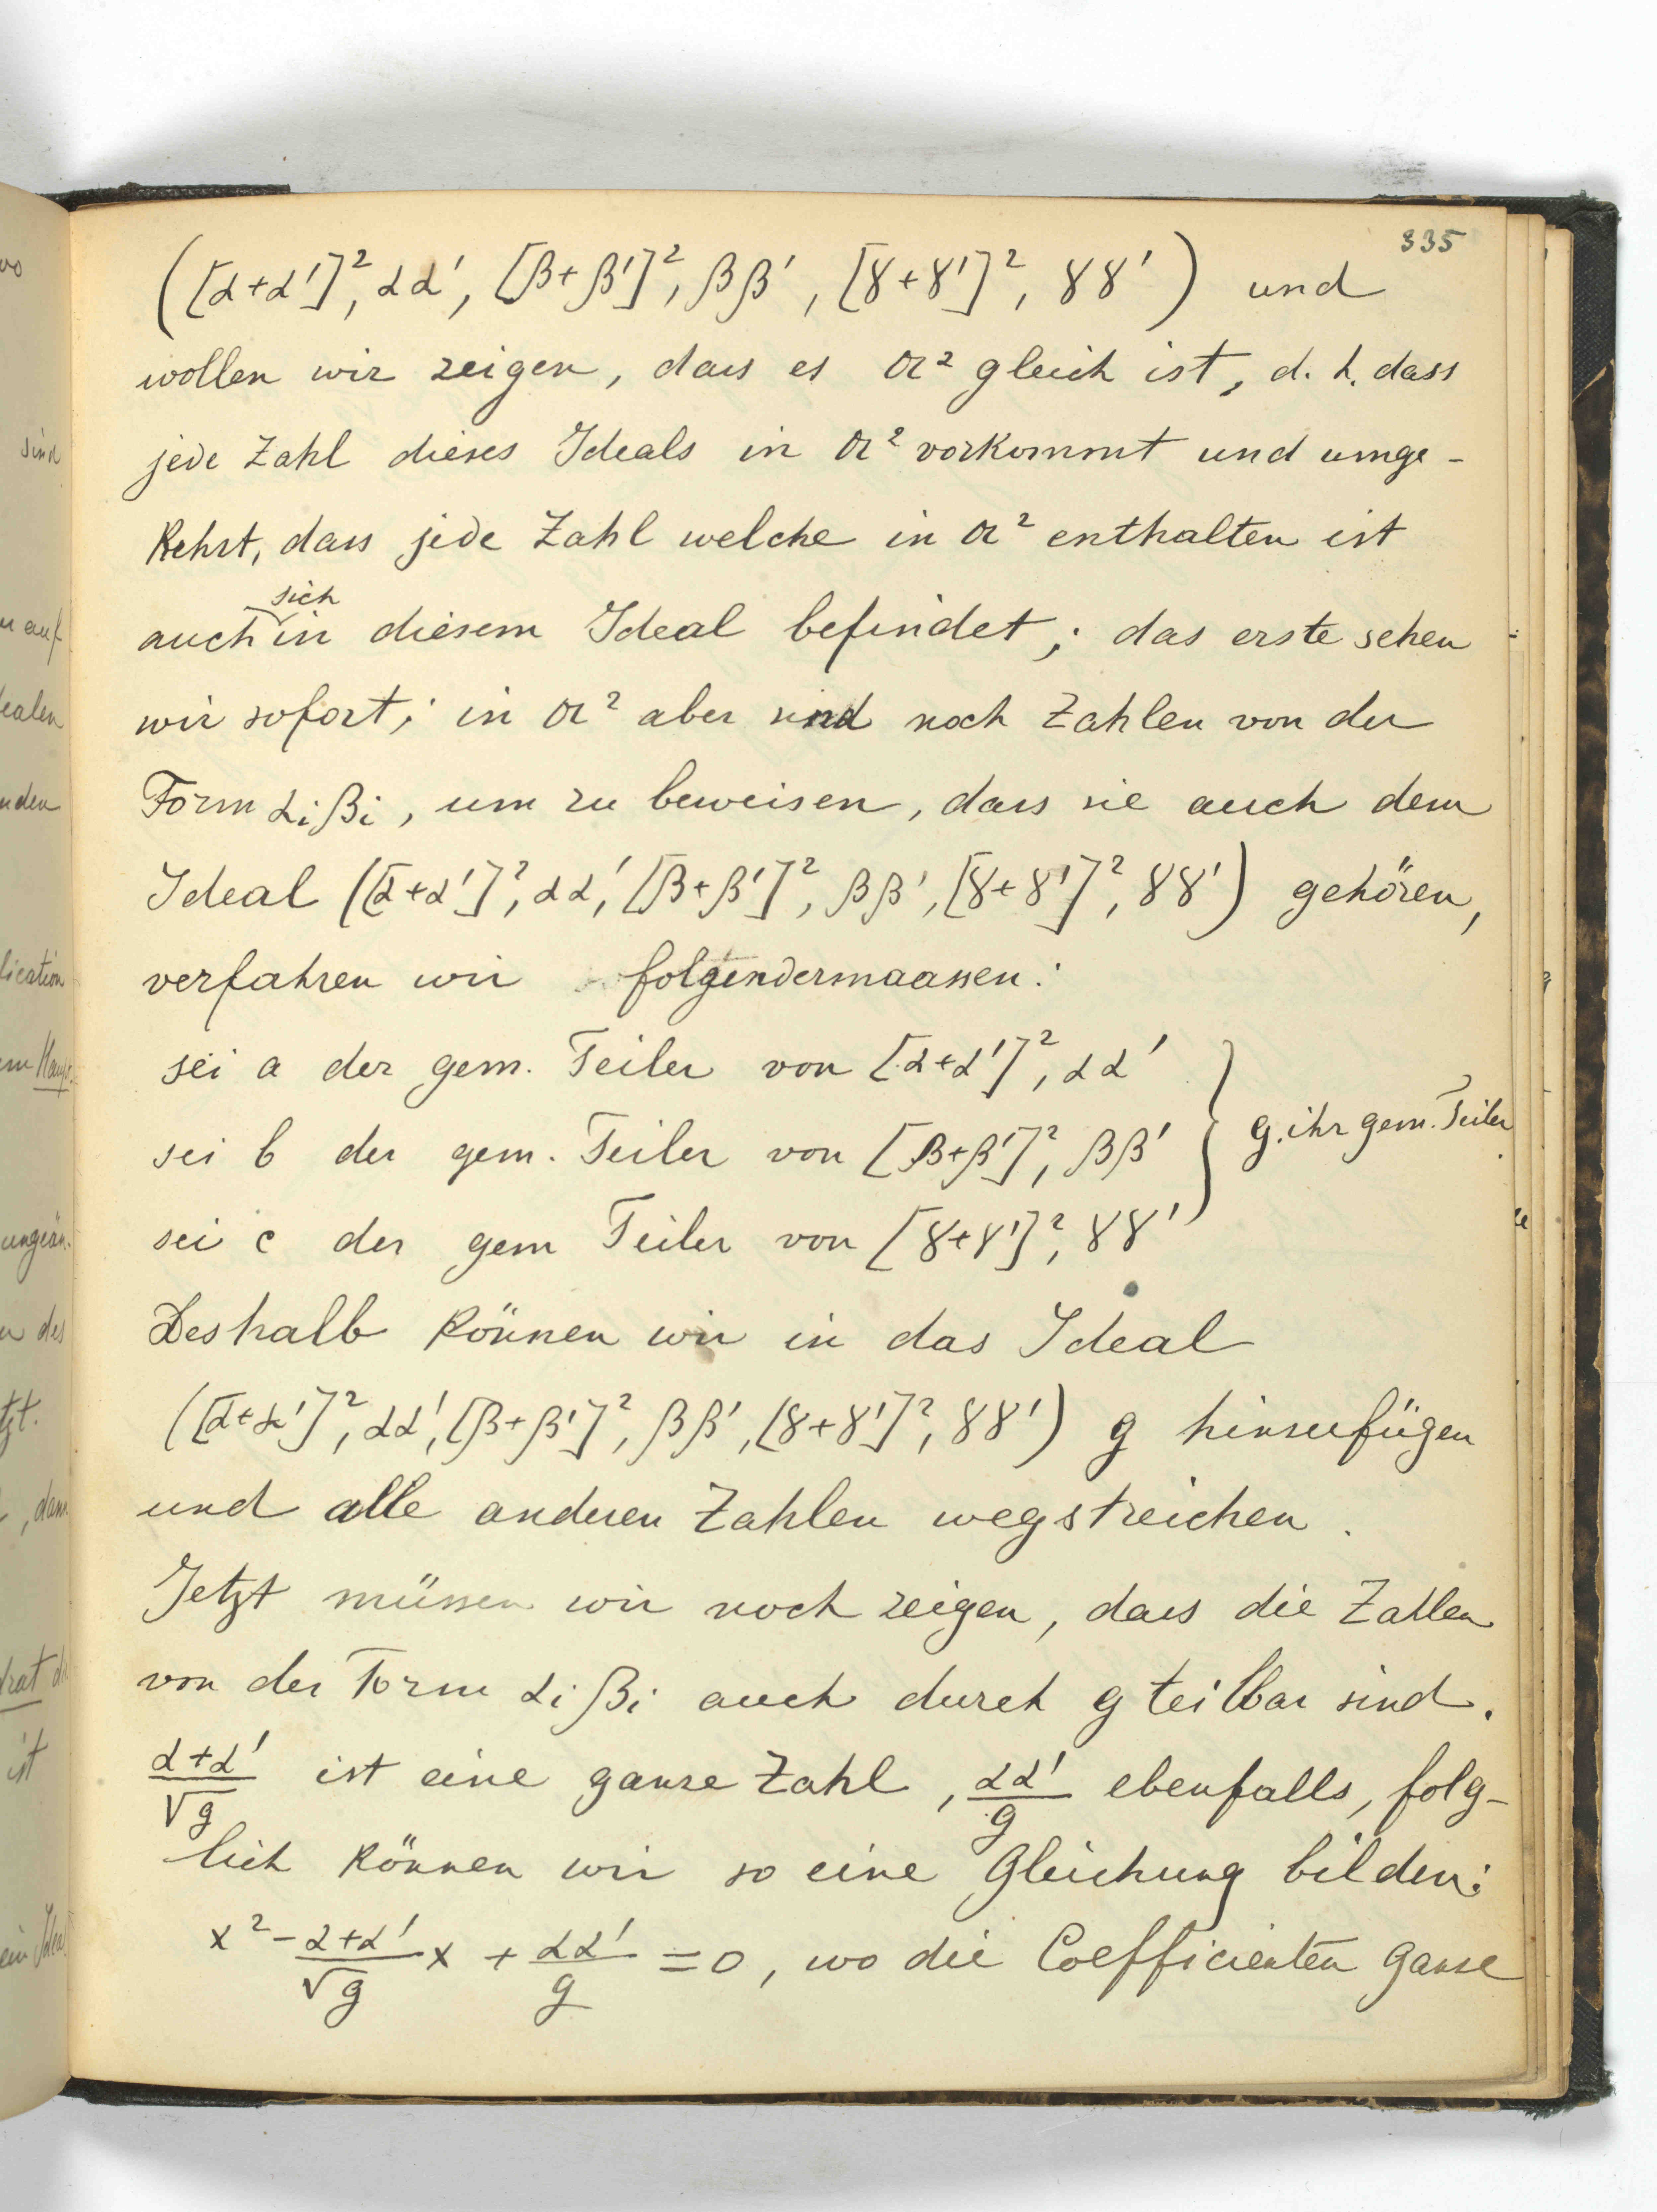 335
([α+α']², αα', [β+β']², ββ', [γ+γ']², γγ') und
wollen wir zeigen, dass es 𝔞² gleich ist, d. h. dass
jede Zahl dieses Ideals in 𝔞² vorkommt und umge-
kehrt, dass jede Zahl welche in 𝔞² enthalten ist
auch sich in diesem Ideal befindet; das erste sehen
wir sofort; in 𝔞² aber sind noch Zahlen von der
Form αᵢβᵢ, um zu beweisen, dass sie auch dem
Ideal ([α+α']², αα', [β+β']², ββ', [γ+γ']², γγ') gehören,
verfahren wir folgendermaassen:
sei a der gem. Teiler von [α+α']², αα'
sei b der gem. Teiler von [β+β']², ββ' } g. ihr gem. Teiler
sei c der gem Teiler von [γ+γ']², γγ'
Deshalb können wir in das Ideal
([α+α']², αα', [β+β']², ββ', [γ+γ']², γγ') g hinzufügen
und alle anderen Zahlen wegstreichen.
Jetzt müssen wir noch zeigen, dass die Zahlen
von der Form αᵢβᵢ auch durch g teilbar sind.
(α+α')/√g ist eine ganze Zahl, αα'/g ebenfalls, folg-
lich können wir so eine Gleichung bilden:
x² - (α+α')/√g x + αα'/g = 0, wo die Coefficienten ganze